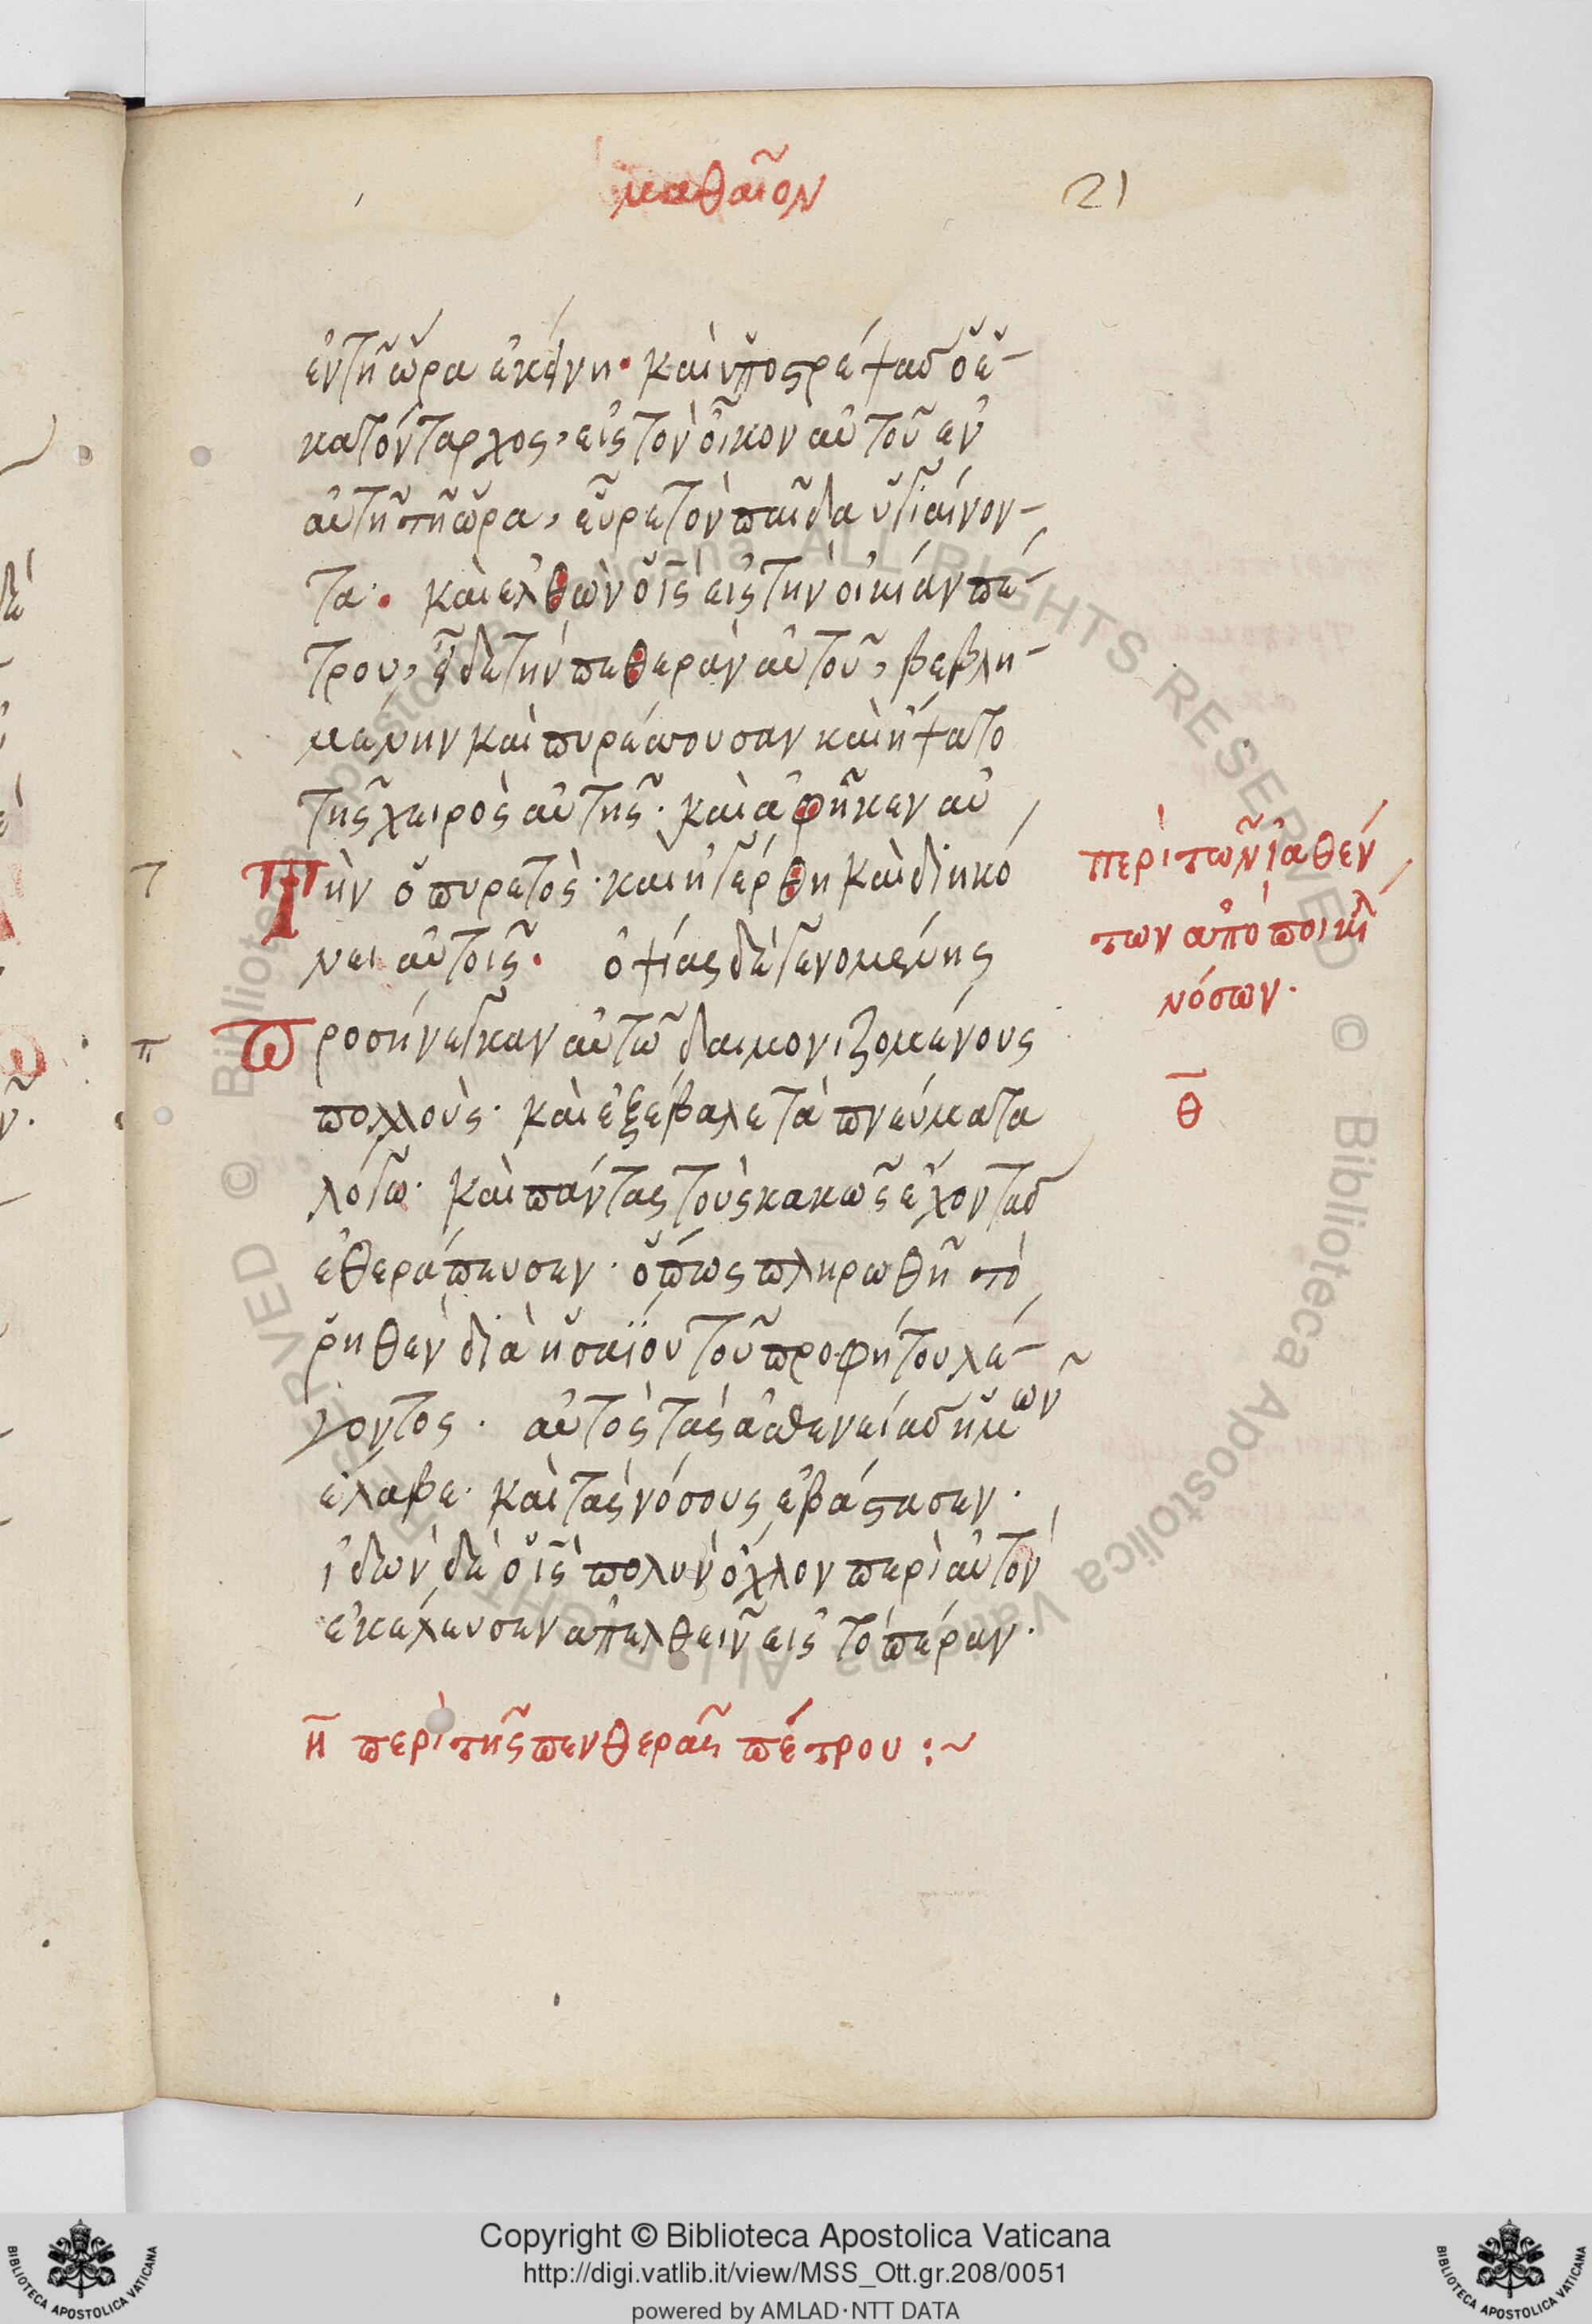 μαθαῖον
21
ἐν τῆ ὥρα ἐκείνη· καὶ ὑποστρέψας ὁ ἑ-
κατόνταρχος, εἰς τὸν οἶκον αὐτοῦ ἐν
αὐτῆ τῆ ὥρα, εὗρε τὸν παῖδα ὑγιαίνον-
τα· καὶ ἐλθὼν ὁ ι̅ς̅ εἰς τὴν οἰκίαν πέ-
τρου, εἶδε τὴν πεθερὰν αὐτοῦ, βεβλη-
μένην καὶ πυρέσσουσαν καὶ ἥψατο
τῆς χειρὸς αὐτῆς· καὶ ἀφῆκεν αὐ
τὴν ὁ πυρετὸς· καὶ ἠγέρθη καὶ διηκό
νει αὐτοῖς· ὀψίας δὲ γενομένης
προσήνεγκαν αὐτῶ δαιμονιζομένους
πολλοὺς· καὶ ἐξέβαλε τὰ πνεύματα
λόγω· καὶ πάντας τοὺς κακῶς ἔχοντας
ἐθεράπευσεν· ὅπως πληρωθῆ τὸ
ῥηθὲν διὰ ἡσαΐου τοῦ προφήτου λέ-
γοντος· αὐτὸς τὰς ἀσθενείας ἡμῶν
ἔλαβε· καὶ τὰς νόσους ἐβάστασεν·
ἰδὼν δὲ ὁ ι̅ς̅ πολὺν ὄχλον περὶ αὐτὸν
ἐκέλευσεν ἀπελθεῖν εἰς τὸ πέραν·
η̅ περὶ τῆς πενθερᾶς πέτρου :~
τ
π
περὶ τῶν ἰαθέν
των ἀπὸ ποικιλ
νόσων·
θ̅
Copyright © Biblioteca Apostolica Vaticana
http://digi.vatlib.it/view/MSS_Ott.gr.208/0051
powered by AMLAD·NTT DATA